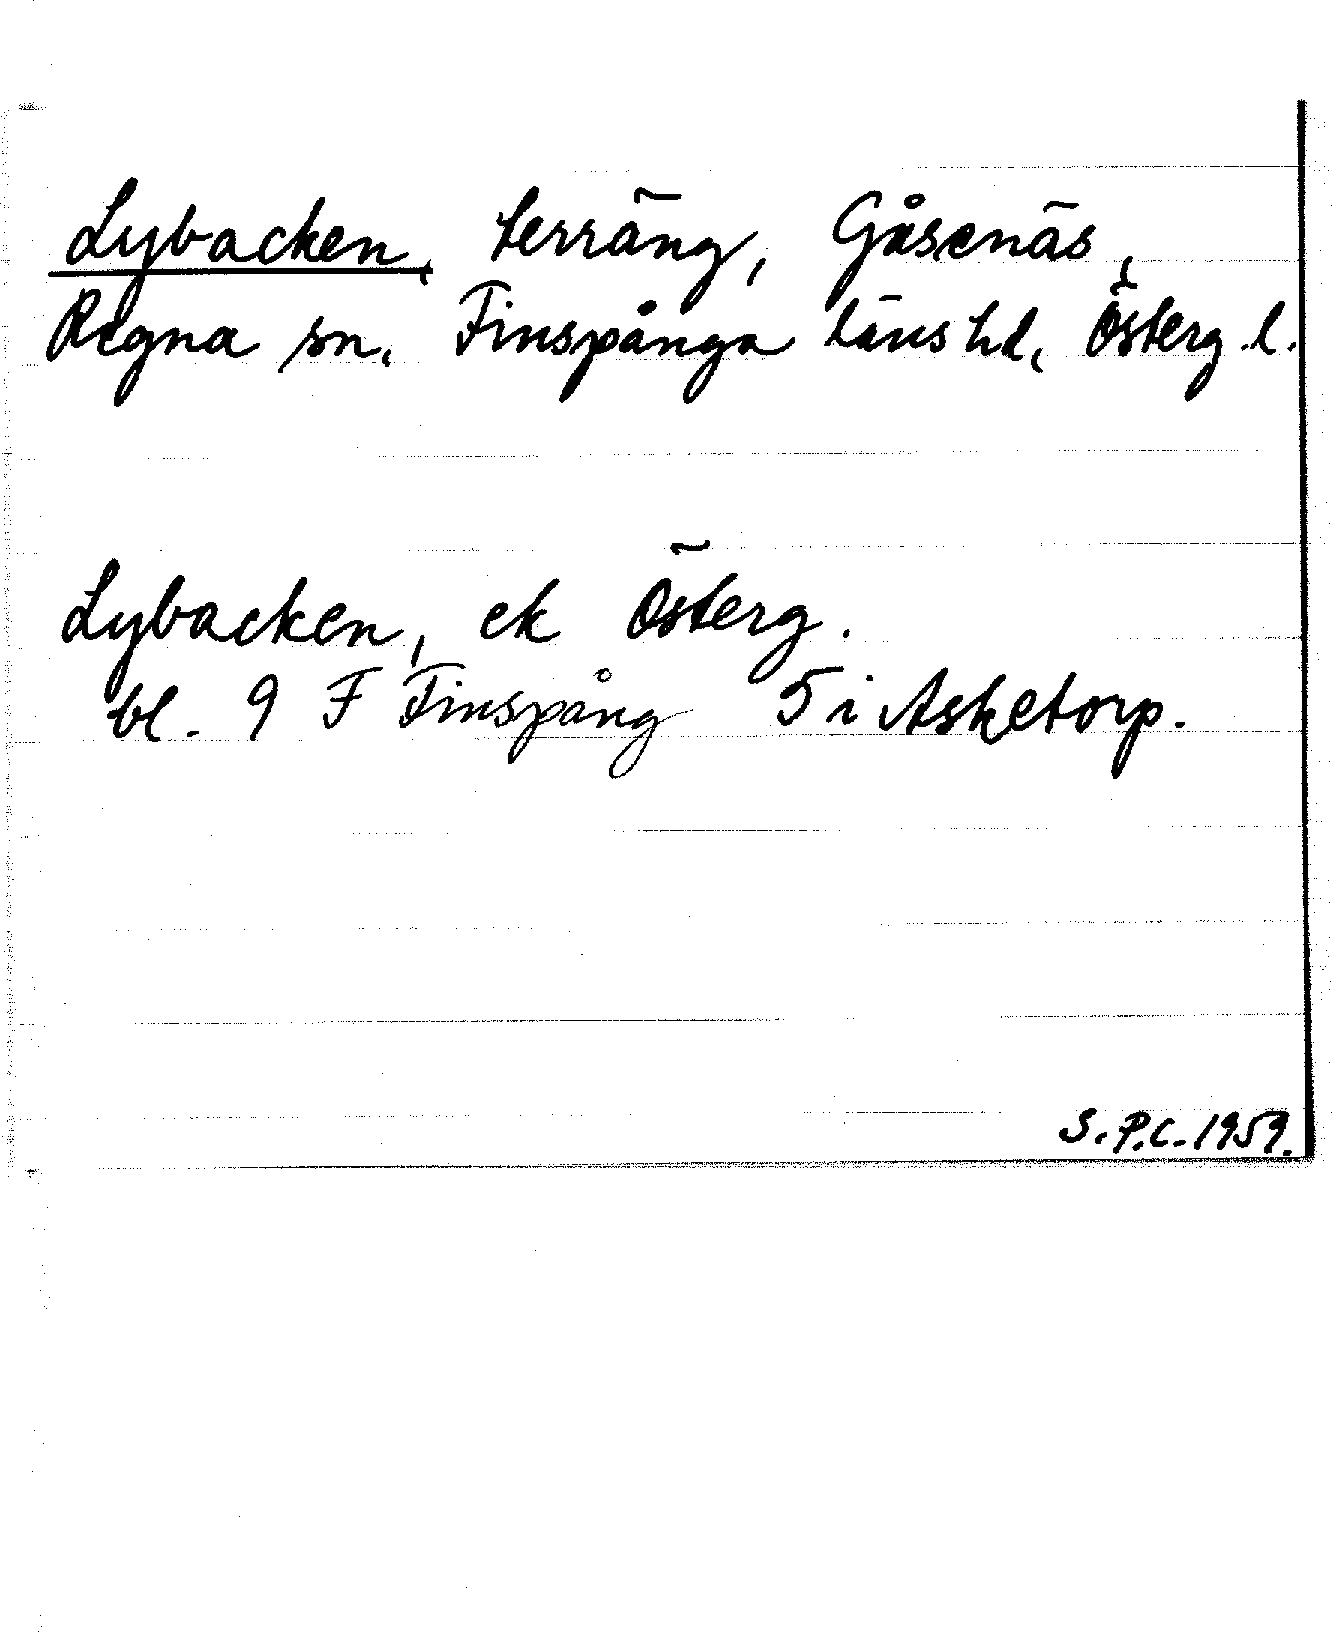 Lybacken, terräng, Gåsenäs,
Regna sn. Finspånga läns hd, Österg.l.
Lybacken, ek Österg.
bl. 9 F Finspång 5 i Asketorp.
S.P.C. 1959.